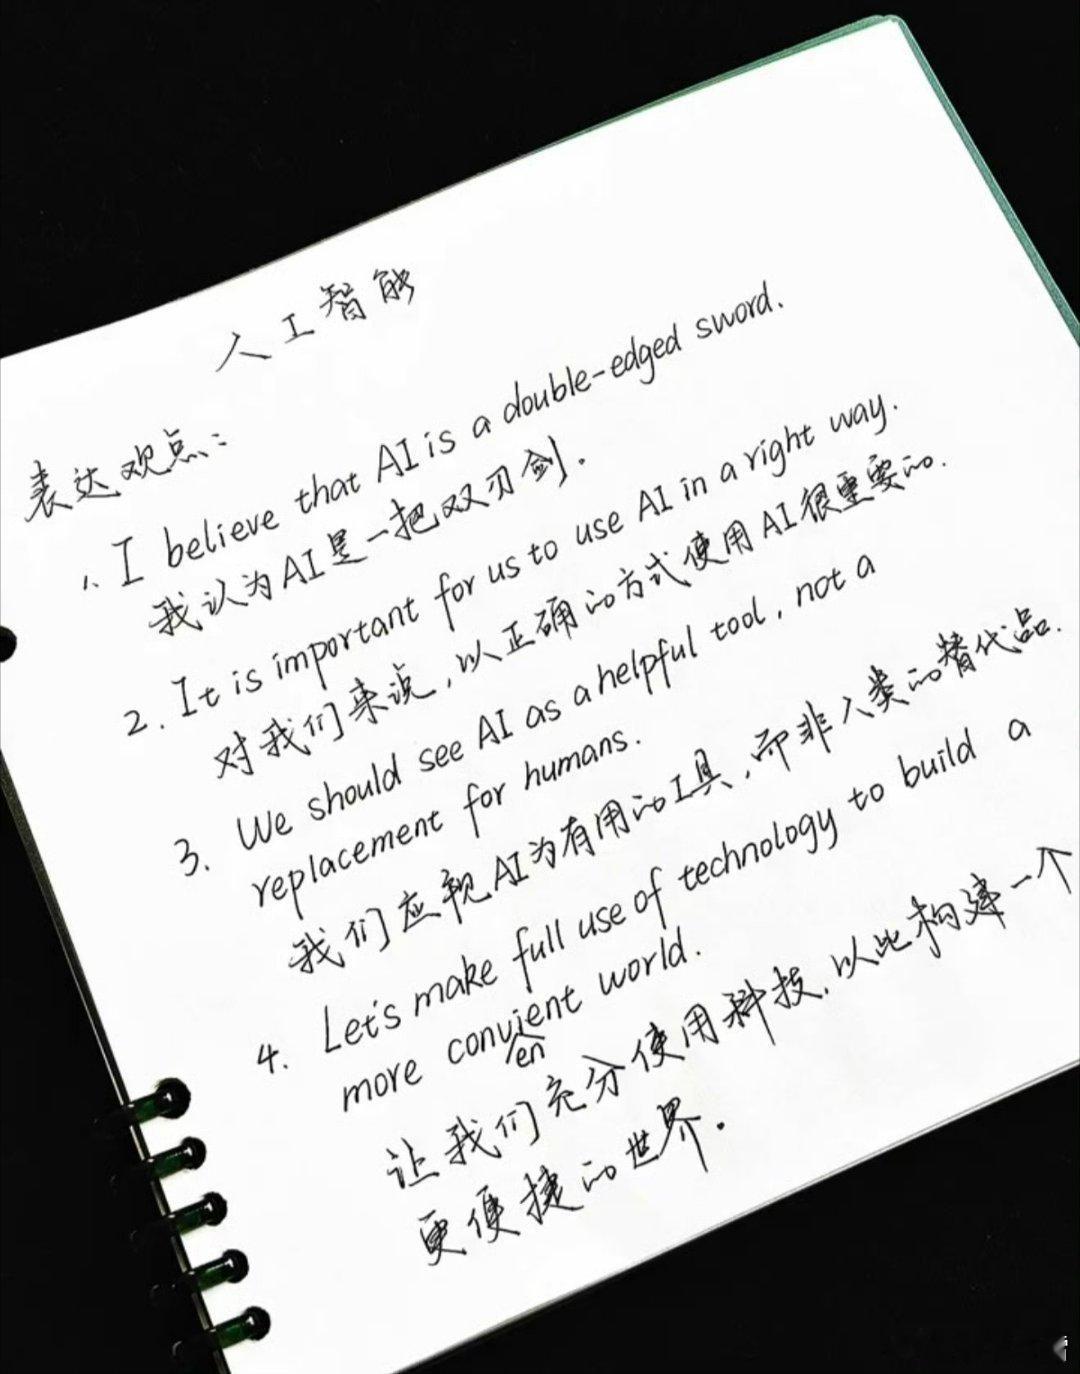 人工智能
表达观点：
1. I believe that AI is a double-edged sword.
我认为AI是一把双刃剑.
2. It is important for us to use AI in a right way.
对我们来说，以正确的方式使用AI很重要的.
3. We should see AI as a helpful tool, not a
replacement for humans.
我们应视AI为有用的工具，而非人类的替代品.
4. Let's make full use of technology to build a
more convient world.
en
让我们充分使用科技，以此构建一个
更便捷的世界.